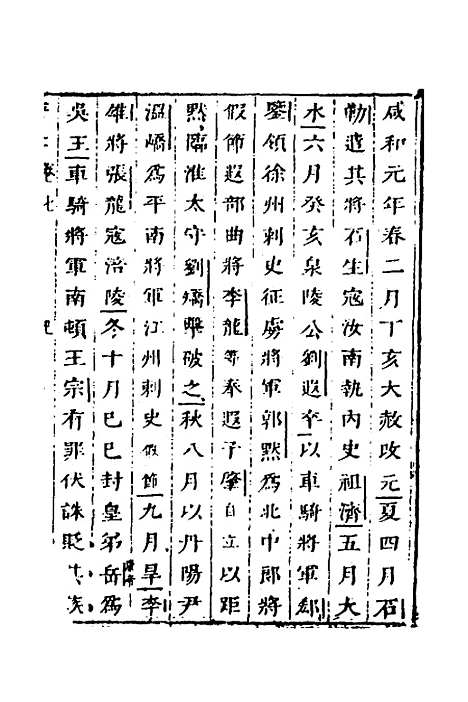 咸和元年春二月丁亥大赦改元夏四月石
勒遣其將石生寇汝南執內史祖濟五月大
水六月癸亥泉陵公劉遐卒以車騎將軍郄
鑒領徐州刺史征虜將軍郭默爲北中郎將
假節遐部曲將李龍等奉遐子肇自立以距
默臨淮太守劉矯擊破之秋八月以丹陽尹
溫嶠爲平南將軍江州刺史假節九月旱李
雄將張龍寇涪陵冬十月己巳封皇弟岳爲
吳王車騎將軍南頓王宗有罪伏誅貶其族
卷七